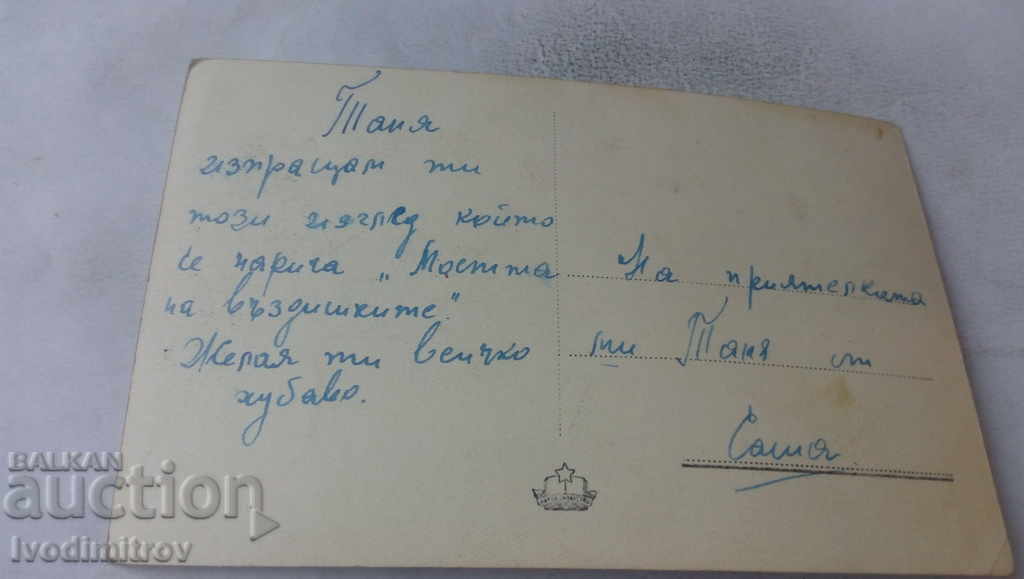 Таня
изпращам ти
този изглед който
се нарича „Мостта
на въздишките".
Желая ти всичко
хубаво.
На приятелката
ми Таня от
Саша.
BALKAN
auction
Ivodimitrov